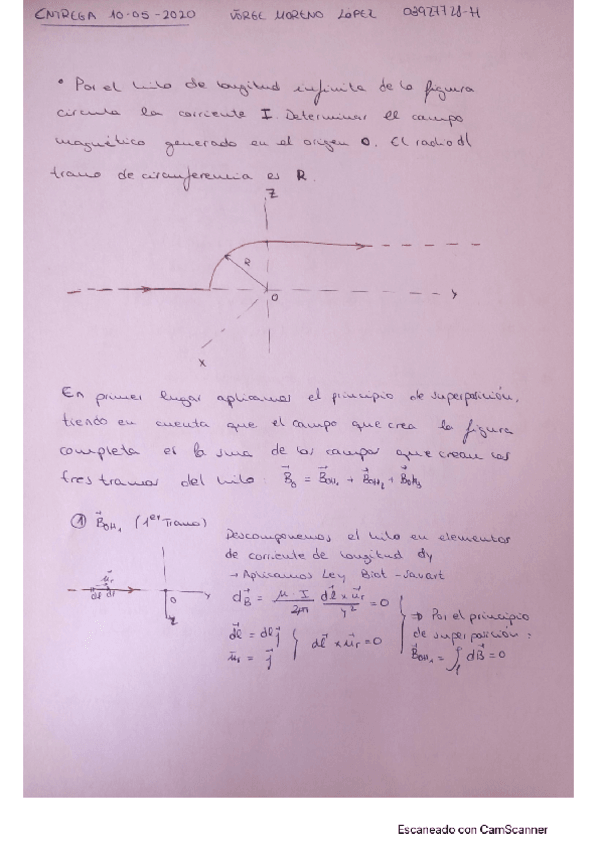 ENTREGA 10-05-2020 JORGE MORENO LOPEZ 03927728-H
• Por el hilo de longitud infinita de la figura
circula la corriente I. Determinar el campo
magnético generado en el origen O. El radio del
tramo de circunferencia es R.
Z
R
O
y
X
En primer lugar aplicamos el principio de superposición,
tiendo en cuenta que el campo que crea la figura
completa es la suma de los campos que crean los
tres tramos del hilo: B⃗₀ = B⃗OH₁ + B⃗OH₂ + B⃗OH₃
① B⃗OH₁ (1er Tramo)
Descomponemos el hilo en elementos
de corriente de longitud dy
→ Aplicamos Ley Biot-Savart
u⃗r
dl
O
y
dB⃗ = μ·I/2π dl⃗ x u⃗r/y² = 0
dl⃗ = dl j⃗
u⃗r = j⃗
} dl⃗ x u⃗r = 0
⇒ Por el principio
de superposición:
B⃗OH₁ = ∫₁ dB⃗ = 0
Escaneado con CamScanner